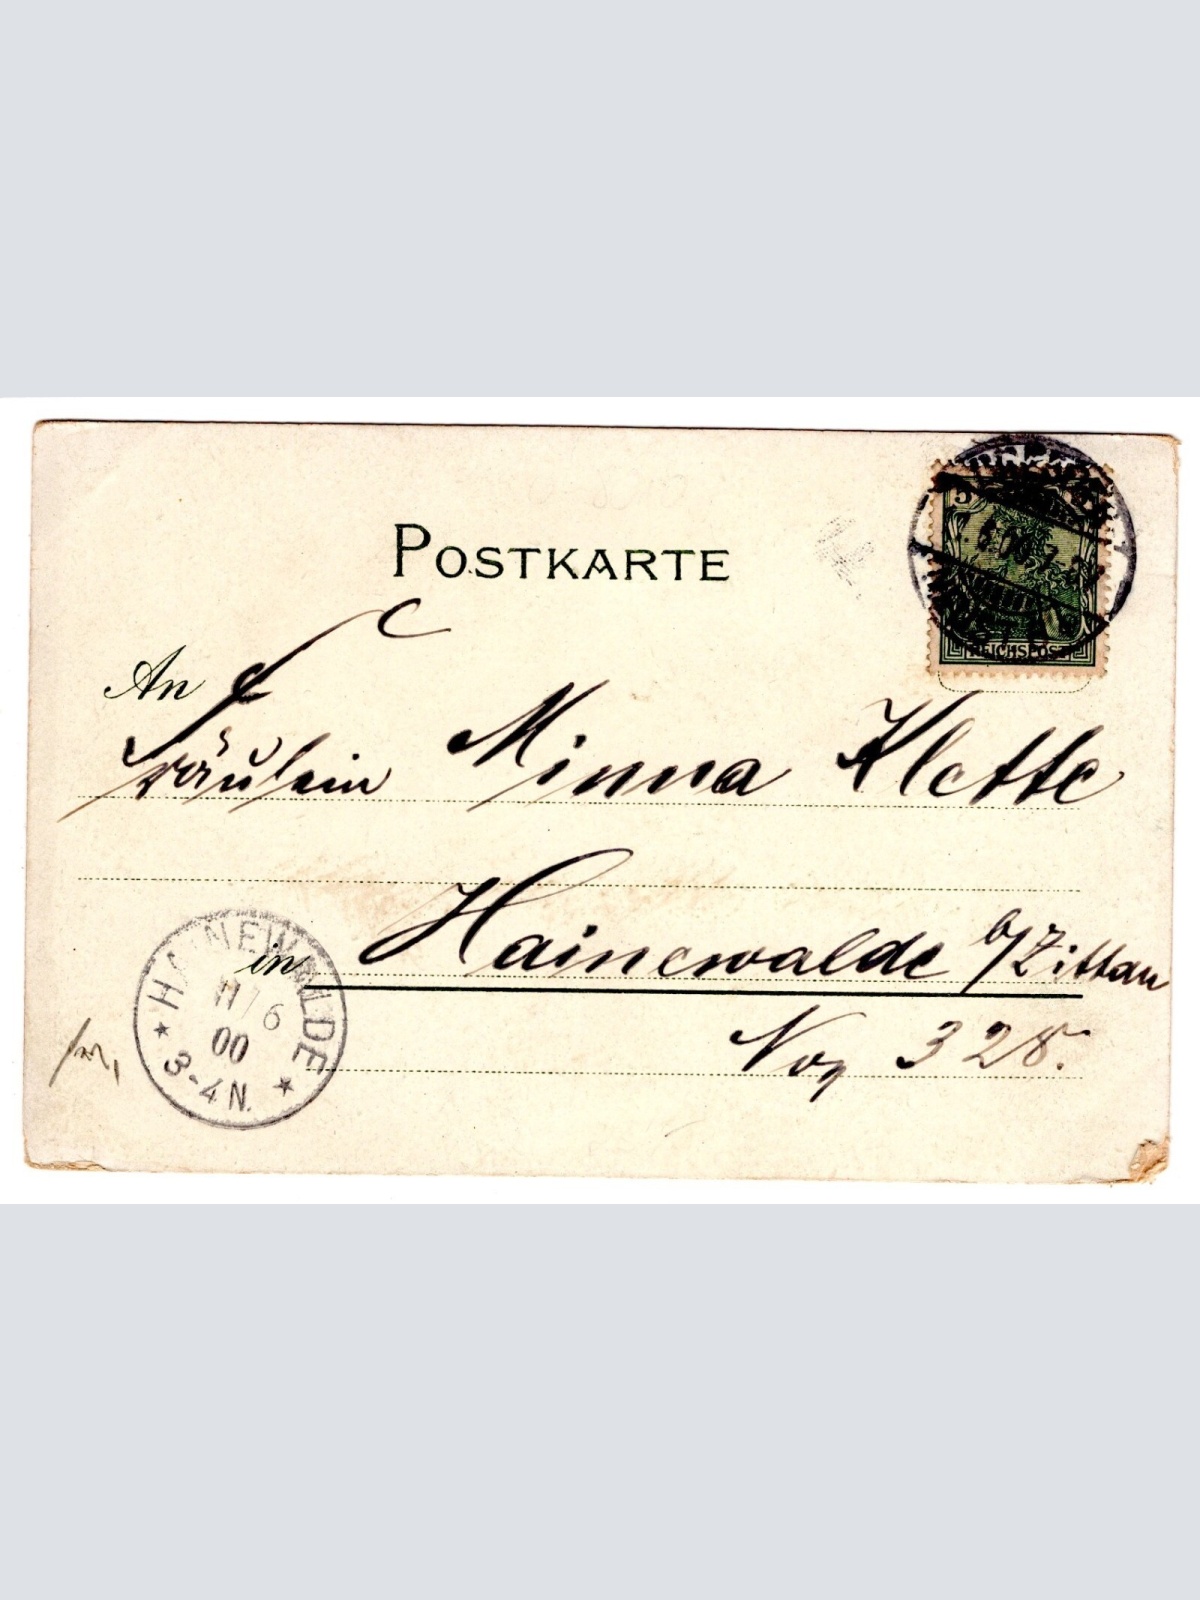 POSTKARTE
5
REICHSPOST
An Fräulein Minna Klette
in Hainewalde b/Zittau
No, 328.
HAINEWALDE
11/6
00
3-4N.